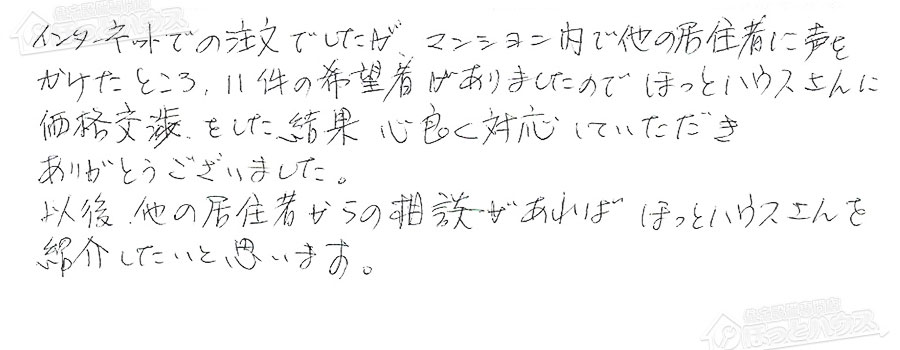 インターネットでの注文でしたが、マンション内で他の居住者に声を
かけたところ、11件の希望者がありましたので ほっとハウスさんに
価格交渉をした結果 心良く対応していただき
ありがとうございました。
以後 他の居住者からの相談があれば ほっとハウスさんを
紹介したいと思います。
住宅設備専門店
ほっとハウス